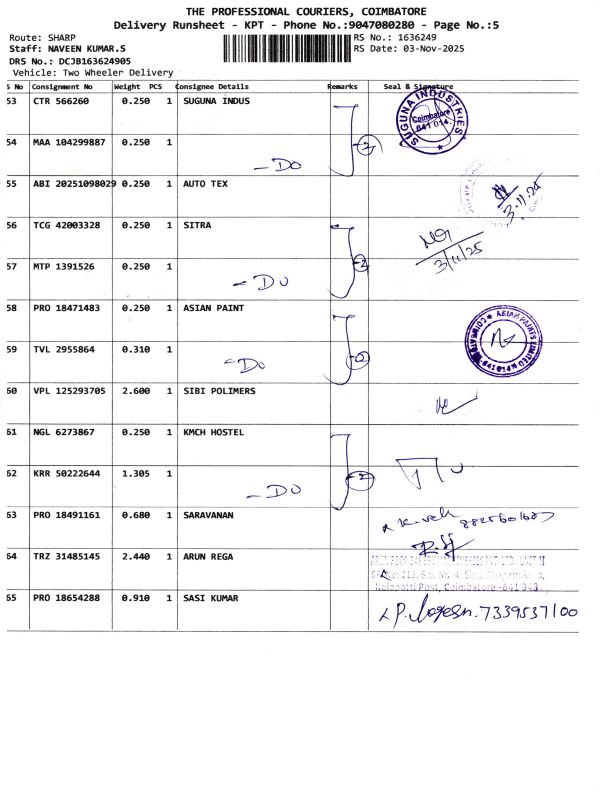 THE PROFESSIONAL COURIERS, COIMBATORE
Delivery Runsheet - KPT - Phone No.:9047080280 - Page No.:5
Route: SHARP RS No.: 1636249
Staff: NAVEEN KUMAR.S RS Date: 03-Nov-2025
DRS No.: DCJB163624905
Vehicle: Two Wheeler Delivery
S No Consignment No Weight PCS Consignee Details Remarks Seal & Signature
53 CTR 566260 0.250 1 SUGUNA INDUS
SUGUNA INDUSTRIES Coimbatore 641 014.
54 MAA 104299887 0.250 1 - DO 2
55 ABI 20251098029 0.250 1 AUTO TEX 3.11.25
56 TCG 42003328 0.250 1 SITRA 3/11/25
57 MTP 1391526 0.250 1 - DO 2
58 PRO 18471483 0.250 1 ASIAN PAINT
ASIAN PAINTS LIMITED COIMBATORE 641014
59 TVL 2955864 0.310 1 - DO 2
60 VPL 125293705 2.600 1 SIBI POLIMERS
61 NGL 6273867 0.250 1 KMCH HOSTEL
62 KRR 50222644 1.305 1 - DO 2
63 PRO 18491161 0.680 1 SARAVANAN
64 TRZ 31485145 2.440 1 ARUN REGA
PVT LTD. UNIT-II
Kalapatti Post, Coimbatore -641 043.
65 PRO 18654288 0.910 1 SASI KUMAR 7339537100